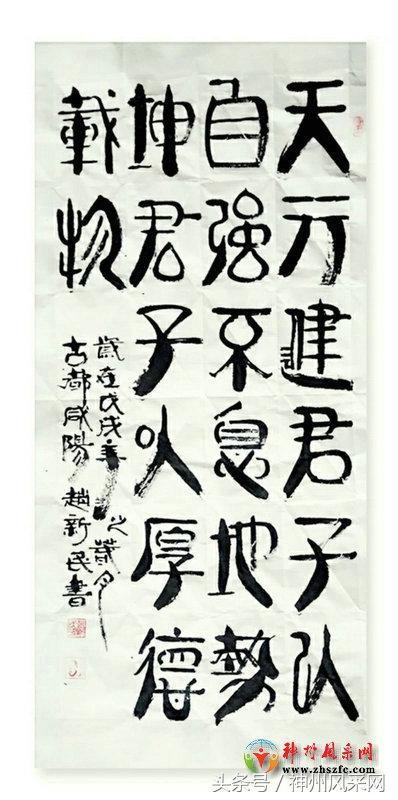 天行建君子以
自强不息地勢
坤君子以厚德
載物
歲在戊戌年之月
古都咸陽 趙新民書
神州风采网
www.zhszfc.com
头条号/神州风采网